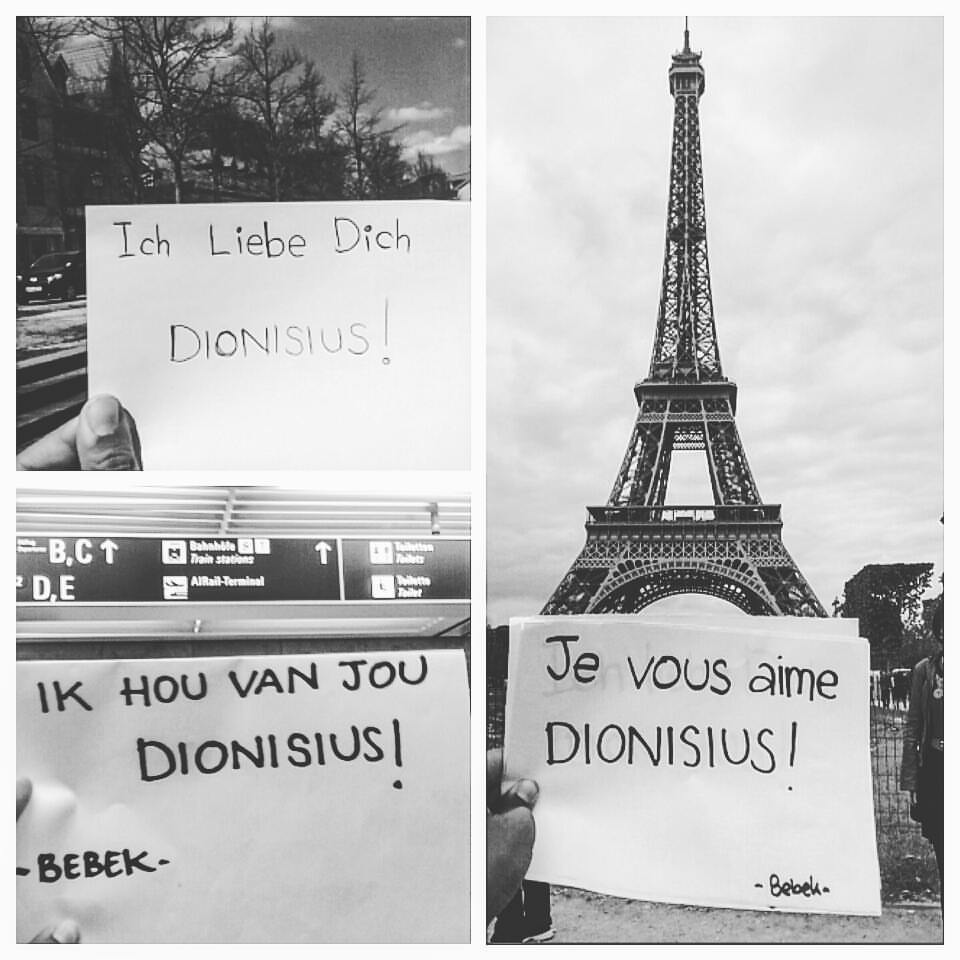 Ich Liebe Dich
DIONISIUS!
B,C
D,E
Bahnhöfe
Train stations
AIRail-Terminal
Toiletten
Toilets
Toilette
Toilet
IK HOU VAN JOU
DIONISIUS!
-BEBEK-
Je vous aime
DIONISIUS!
-Bebek-